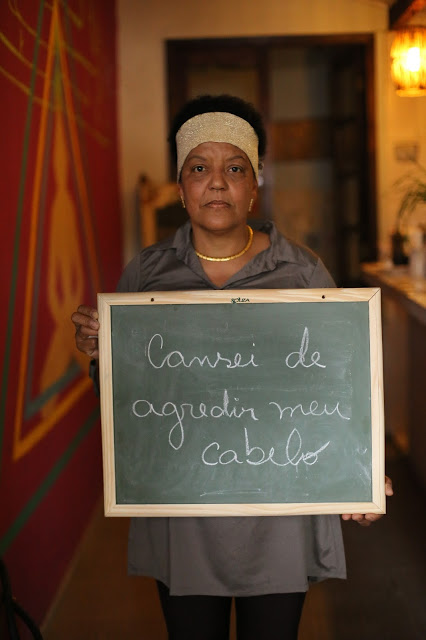 Cansei de
agredir meu
cabelo